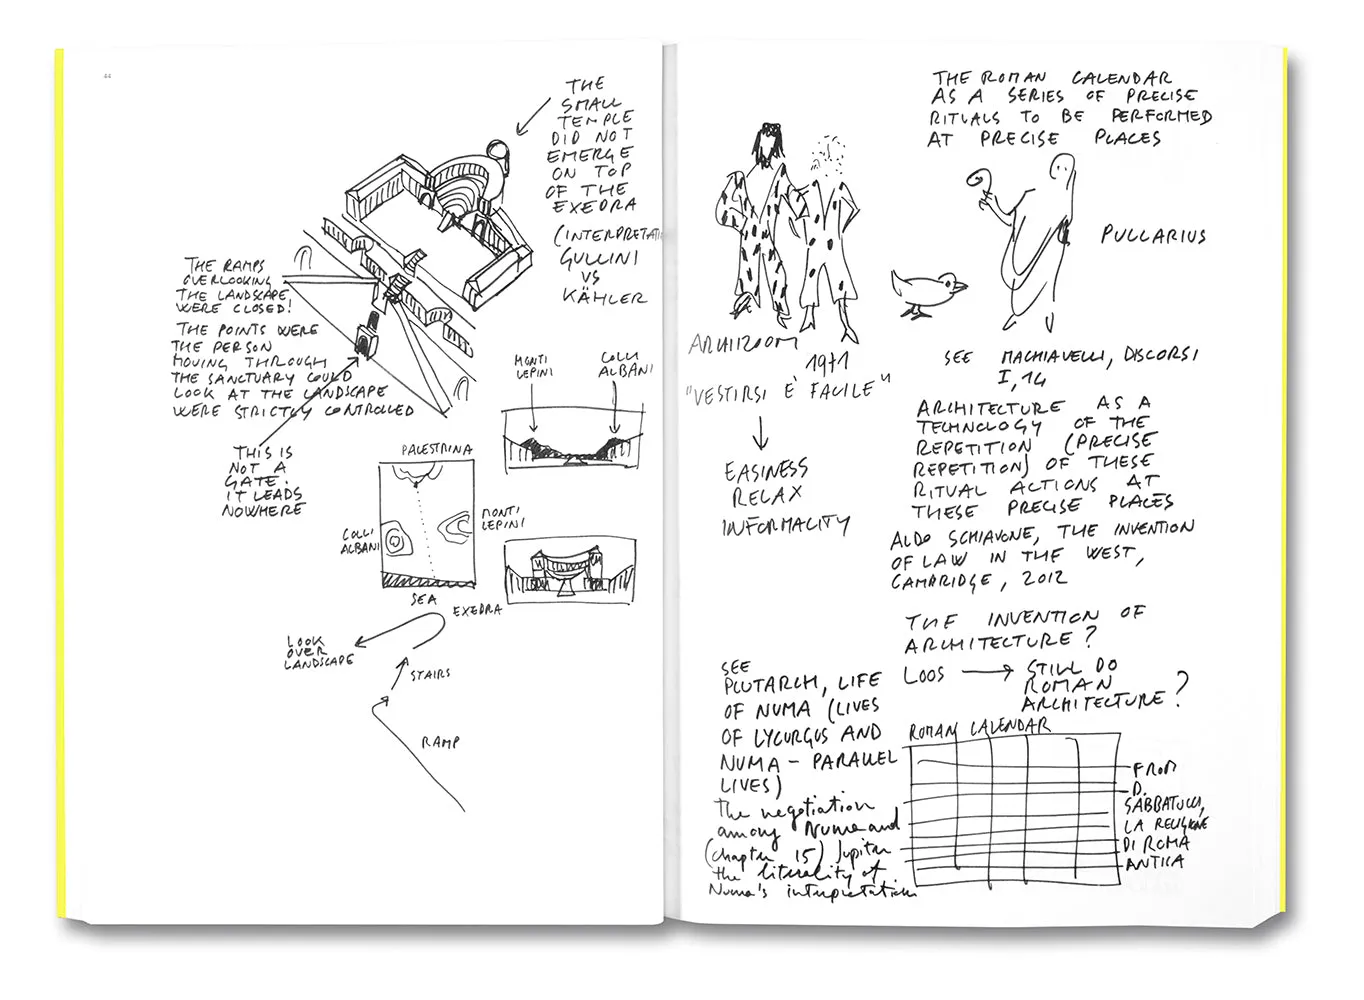 44
THE
SMALL
TEMPLE
DID NOT
EMERGE
ON TOP
OF THE
EXEDRA
(INTERPRETATI
GULLINI
VS
KÄHLER
THE RAMPS
OVERLOOKING
THE LANDSCAPE
WERE CLOSED!
THE POINTS WERE
THE PERSON
MOVING THROUGH
THE SANCTUARY COULD
LOOK AT THE LANDSCAPE
WERE STRICTLY CONTROLLED
THIS IS
NOT A
GATE.
IT LEADS
NOWHERE
MONTI
LEPINI
COLLI
ALBANI
PALESTRINA
COLLI
ALBANI
MONTI
LEPINI
SEA
EXEDRA
LOOK
OVER
LANDSCAPE
STAIRS
RAMP
THE ROMAN CALENDAR
AS A SERIES OF PRECISE
RITUALS TO BE PERFORMED
AT PRECISE PLACES
PULLARIUS
ARCHIZOOM
1971
"VESTIRSI È FACILE"
EASINESS
RELAX
INFORMALITY
SEE MACHIAVELLI, DISCORSI
I, 14
ARCHITECTURE AS A
TECHNOLOGY OF THE
REPETITION (PRECISE
REPETITION) OF THESE
RITUAL ACTIONS AT
THESE PRECISE PLACES
ALDO SCHIAVONE, THE INVENTION
OF LAW IN THE WEST,
CAMBRIDGE, 2012
THE INVENTION OF
ARCHITECTURE?
LOOS → STILL DO
ROMAN
ARCHITECTURE?
SEE
PLUTARCH, LIFE
OF NUMA (LIVES
OF LYCURGUS AND
NUMA – PARALLEL
LIVES)
The negotiation
among Numa and
(chapter 15) Jupiter
the literality of
Numa's interpretation
ROMAN CALENDAR
FROM
D.
SABBATUCCI,
LA RELIGIONE
DI ROMA
ANTICA